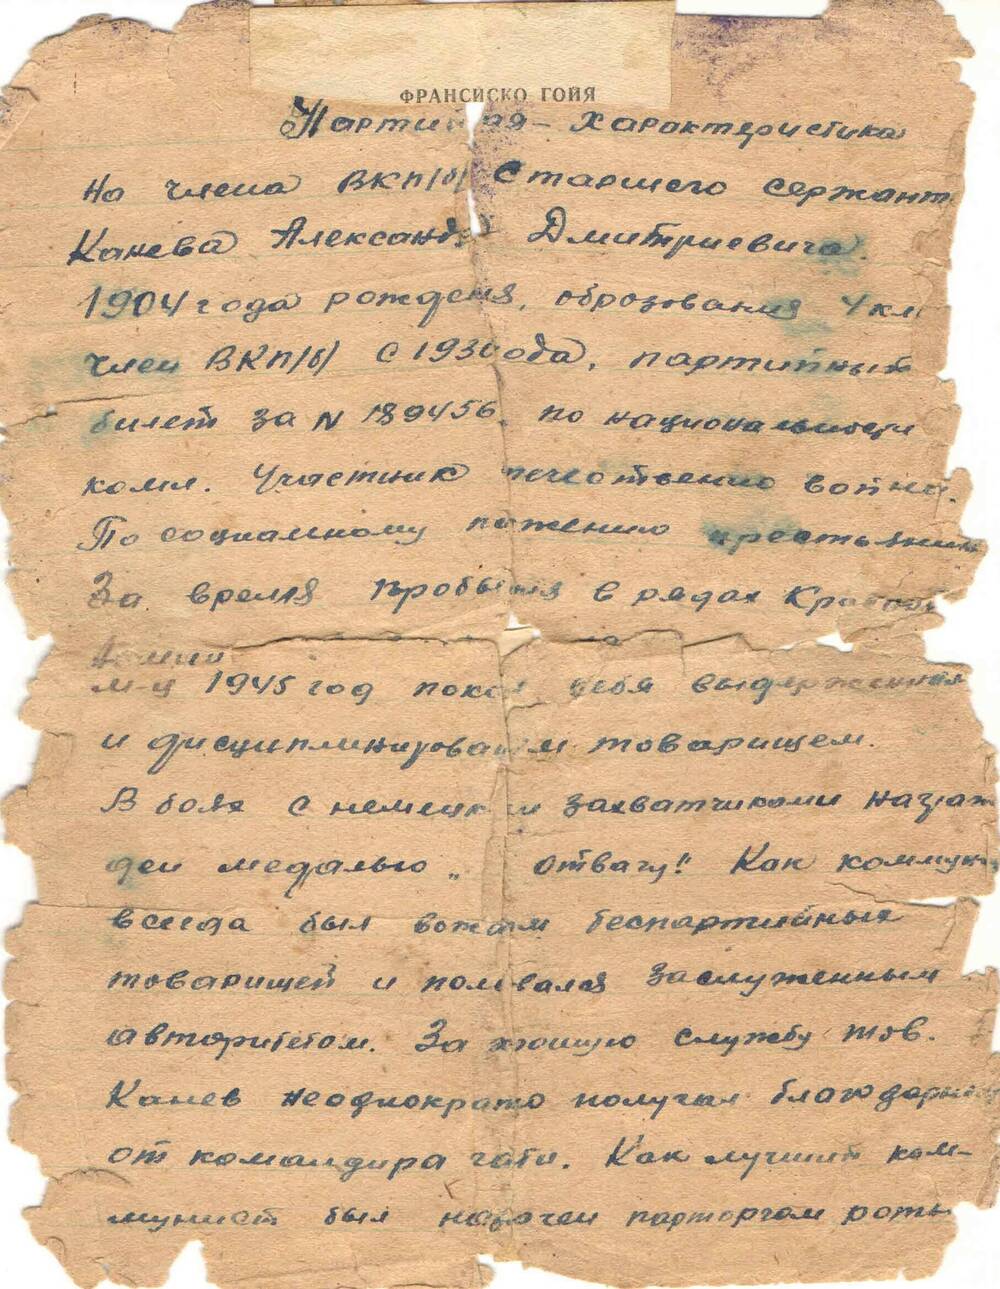 ФРАНСИСКО ГОЙЯ
Партийная – характеристика
на члена ВКП/б/ Старшего сержант
Канева Александра Дмитриевича.
1904 года рожденя, оброзования 4 кл
член ВКП/б/ с 193 ода, партийный
билет за N 189456 по национальности
коми. Участник течественно войны.
По социалному пажению крестьянин
За время пробытия в рядах Красной
Армии
м-ц 1945 год пока себя выдержанным
и дисциплинированым товарищем.
В боях с немецким захватчиками награж
ден медалью „ отвагу!! Как коммун
всегда был вожаком беспартийных
товарищей и ползвался заслуженным
авторитетом. За хрошую службу тов.
Канев неоднократо получал благодарнос
от командира чати. Как лучший ком-
мунист был назначен парторгом роты